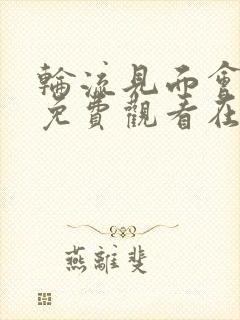 輪流見面會
免費觀看在
燕離斐